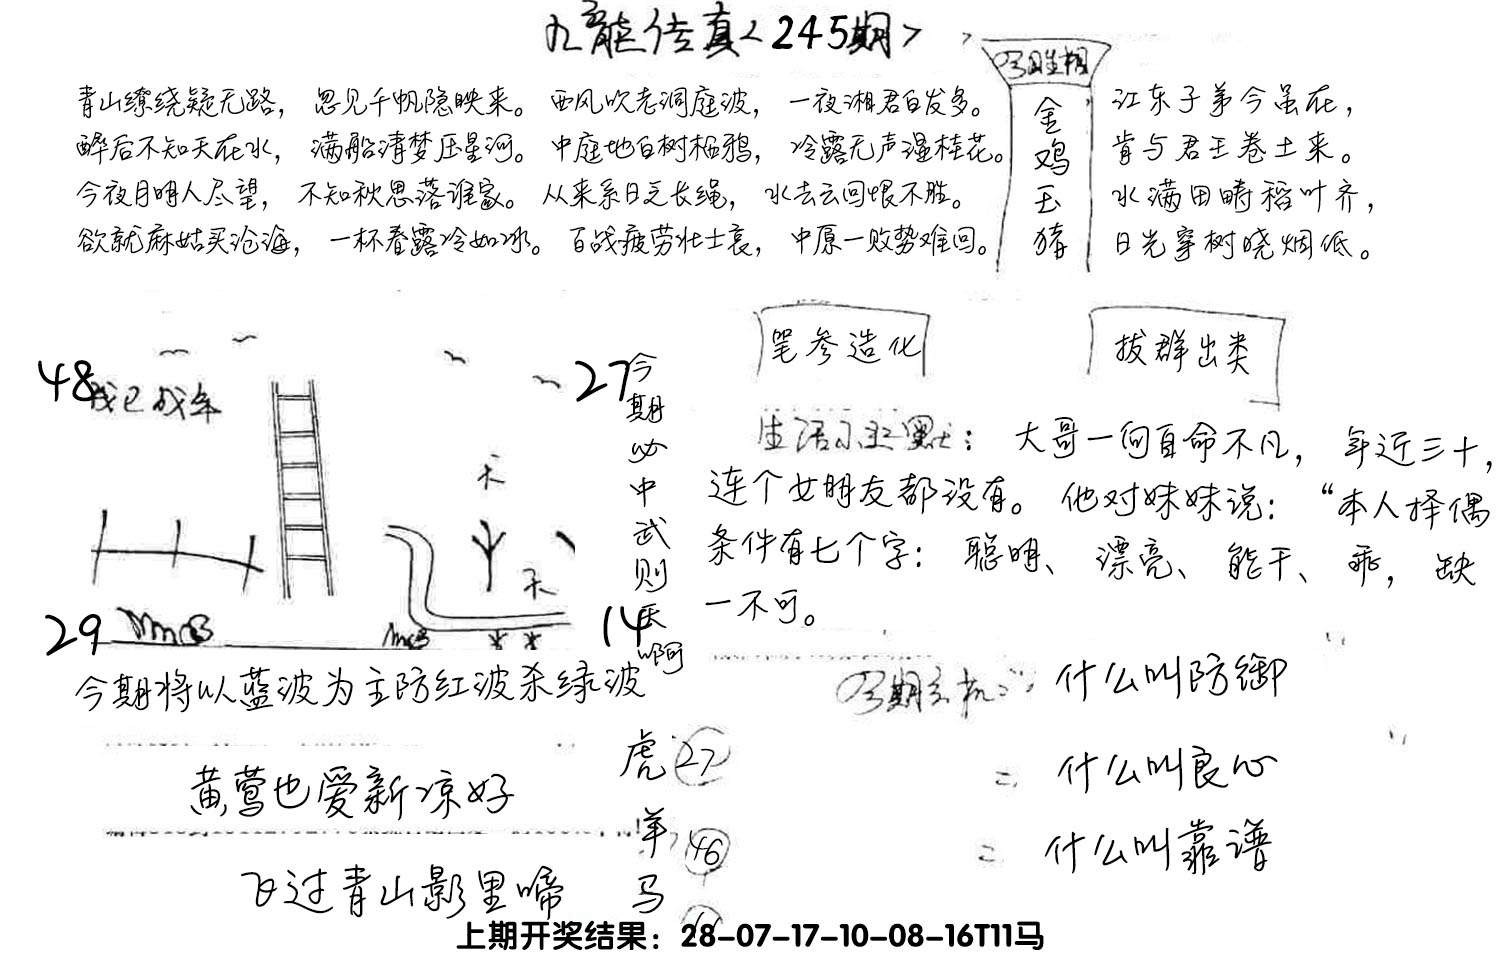 九龙传真<245期>
青山缭绕疑无路，忽见千帆隐映来。西风吹老洞庭波，一夜湘君白发多。
醉后不知天在水，满船清梦压星河。中庭地白树栖鸦，冷露无声湿桂花。
今夜月明人尽望，不知秋思落谁家。从来系日乏长绳，水去云回恨不胜。
欲就麻姑买沧海，一杯春露冷如冰。百战疲劳壮士哀，中原一败势难回。
金
鸡
玉
猪
江东子弟今虽在，
肯与君王卷土来。
水满田畴稻叶齐，
日光穿树晓烟低。
48
27
29
14
今期必中武则天啊
今期将以蓝波为主防红波杀绿波
黄莺也爱新凉好
飞过青山影里啼
虎 27
羊 46
马
笔参造化
拔群出类
生活小幽默：大哥一向自命不凡，年近三十，
连个女朋友都没有。他对妹妹说：“本人择偶
条件有七个字：聪明、漂亮、能干、乖，缺
一不可。
今期玄机: 什么叫防御
= 什么叫良心
= 什么叫靠谱
上期开奖结果：28-07-17-10-08-16T11马